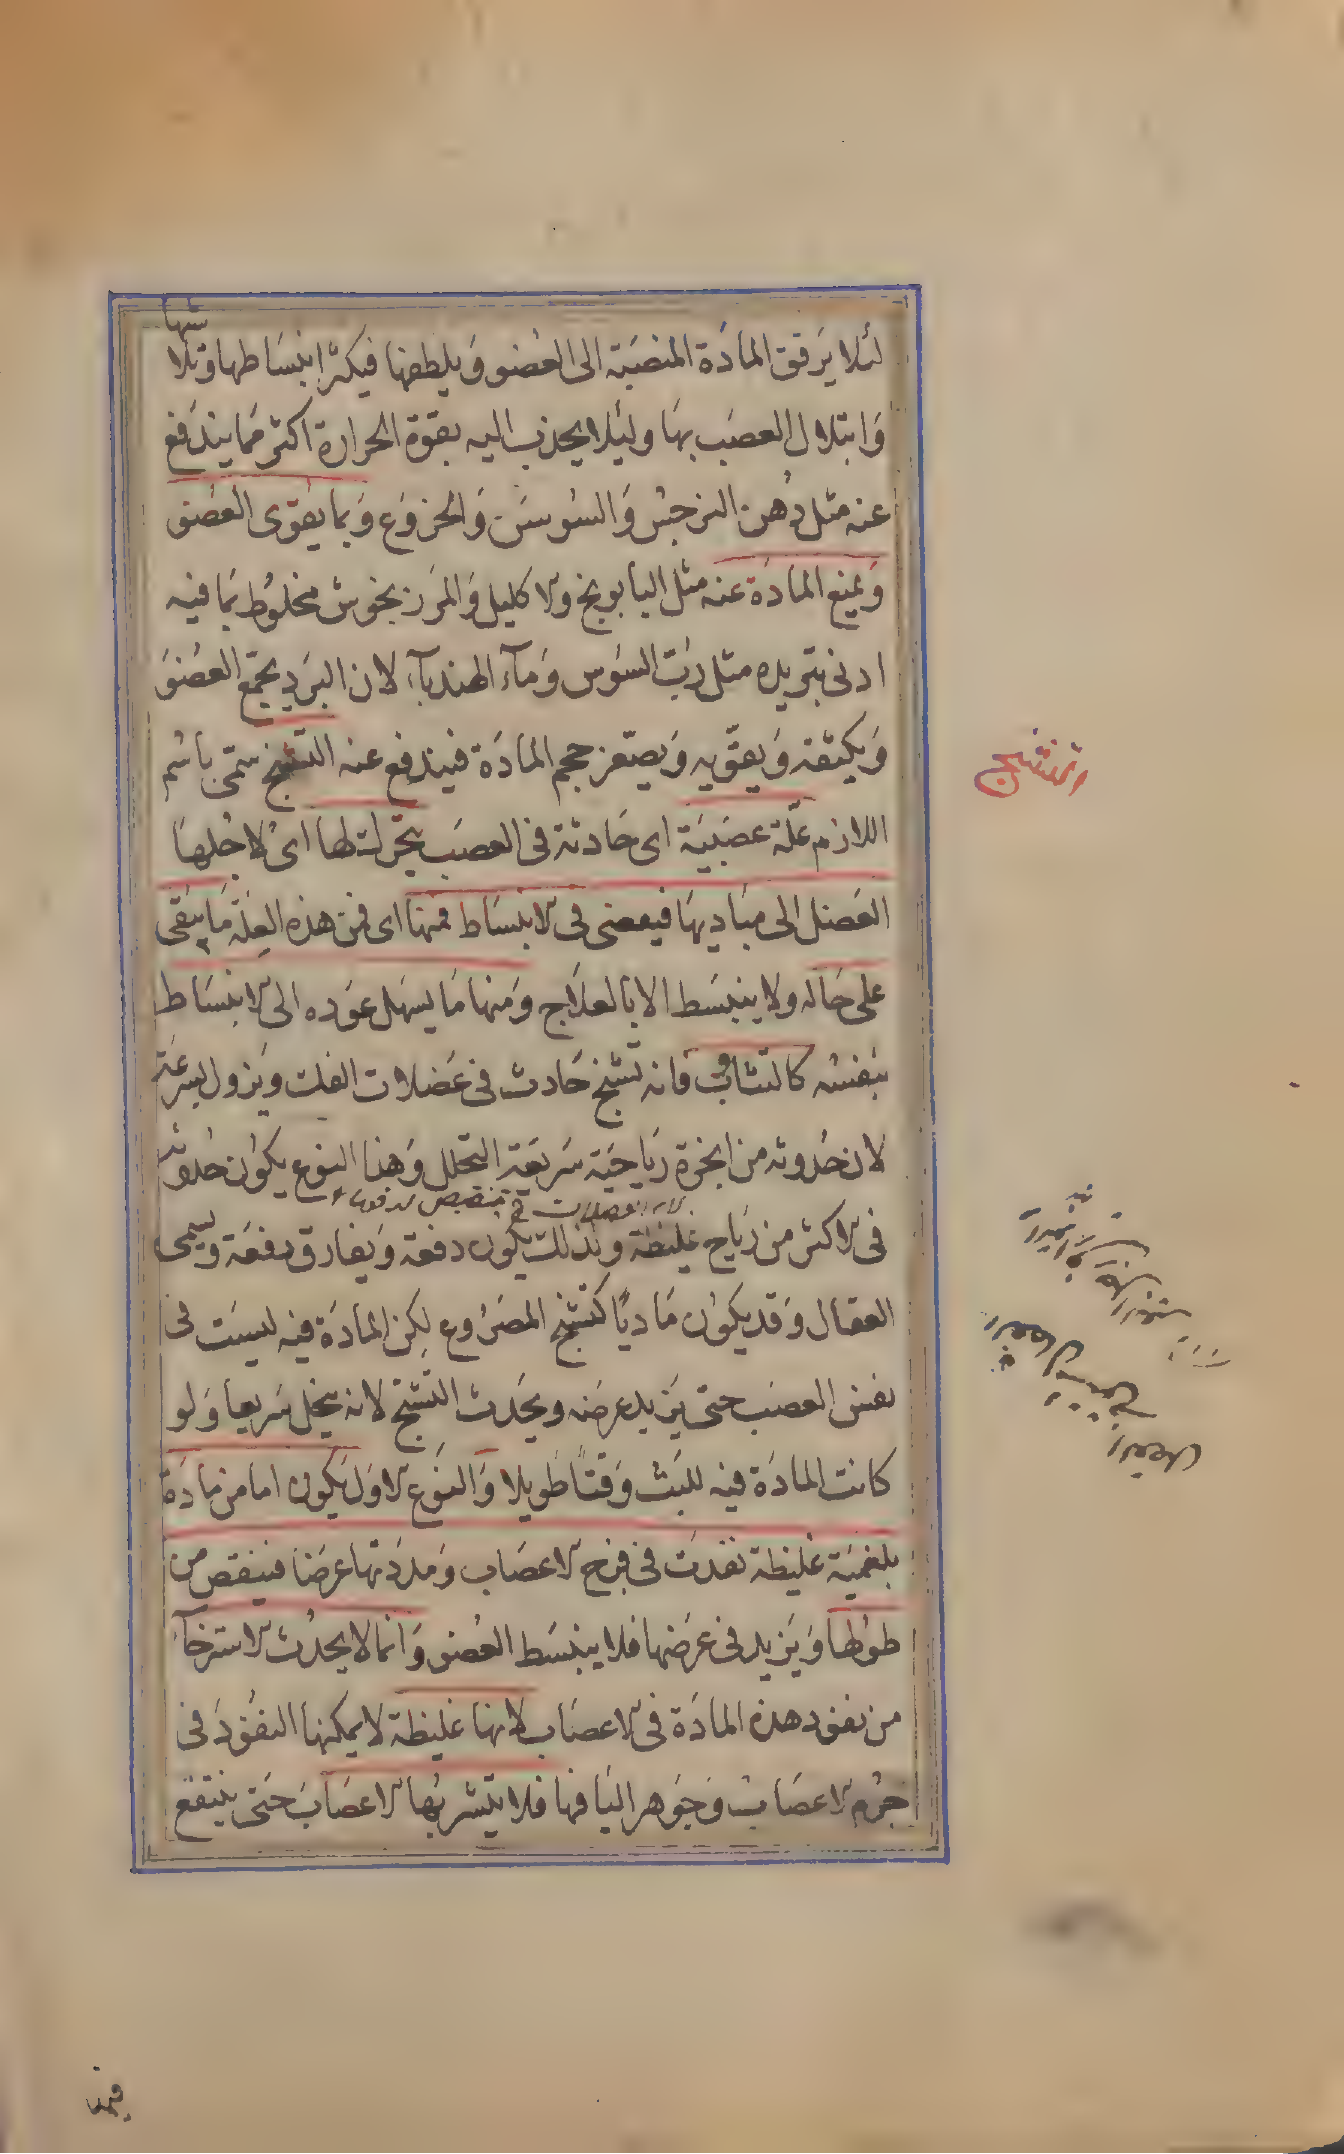 لئلا يرقق المادة المنصبة الى العضو ويلطفها فيكثر انبساطها وتلا
شيها
وابتلال العصب بها ولئلا يجذب اليه بقوة الحرارة اكثر مما يندفع
عنه مثل دهن النرجس والسوسن والخروع وبما يقوى العضو
ويمنع المادة عنه مثل البابونج والاكليل والمرزنجوش مخلوط بما فيه
ادنى تبريد مثل رب السوس ومآء الهندبآء لان البرد يجمع العضو
ويكثفه ويقويه ويصغر حجم المادة فيندفع عنه التشنج سمى باسم
التشنج
اللازم علة عصبية اى حادثة فى العصب يتحرك لها اى لاجلها
العضل الى مباديها فيعصى فى الانبساط فمنها اى فمن هذه العلة ما يبقى
على حاله ولا ينبسط الا بالعلاج ومنها ما يسهل عوده الى الانبساط
بنفسه كالتثاوب فانه تشنج حادث فى عضلات الفك ويزول بسرعة
لان حدوثه من ابخرة رياحية سريعة التحلل وهذا النوع يكون حدوثه
فى الاكثر من رياح غليظة ولذلك يكون دفعة ويفارق دفعة ويسمى
العقال وقد يكون ماديا كتشنج المصروع لكن المادة فيه ليست فى
نفس العصب حتى يزيد عرضه ويحدث التشنج لانه ينحل سريعا ولو
كانت المادة فيه للبث وقتا طويلا والنوع الاول يكون اما من مادة
بلغمية غليظة نفذت فى فرج الاعصاب ومددتها عرضا فينقص من
طولها ويزيد فى عرضها فلا ينبسط العضو وانما لا يحدث الاسترخآء
من نفوذ هذه المادة فى الاعصاب لانها غليظة لا يمكنها النفوذ فى
جرم الاعصاب وجوهر اليافها فلا يتشربها الاعصاب حتى ينتقع